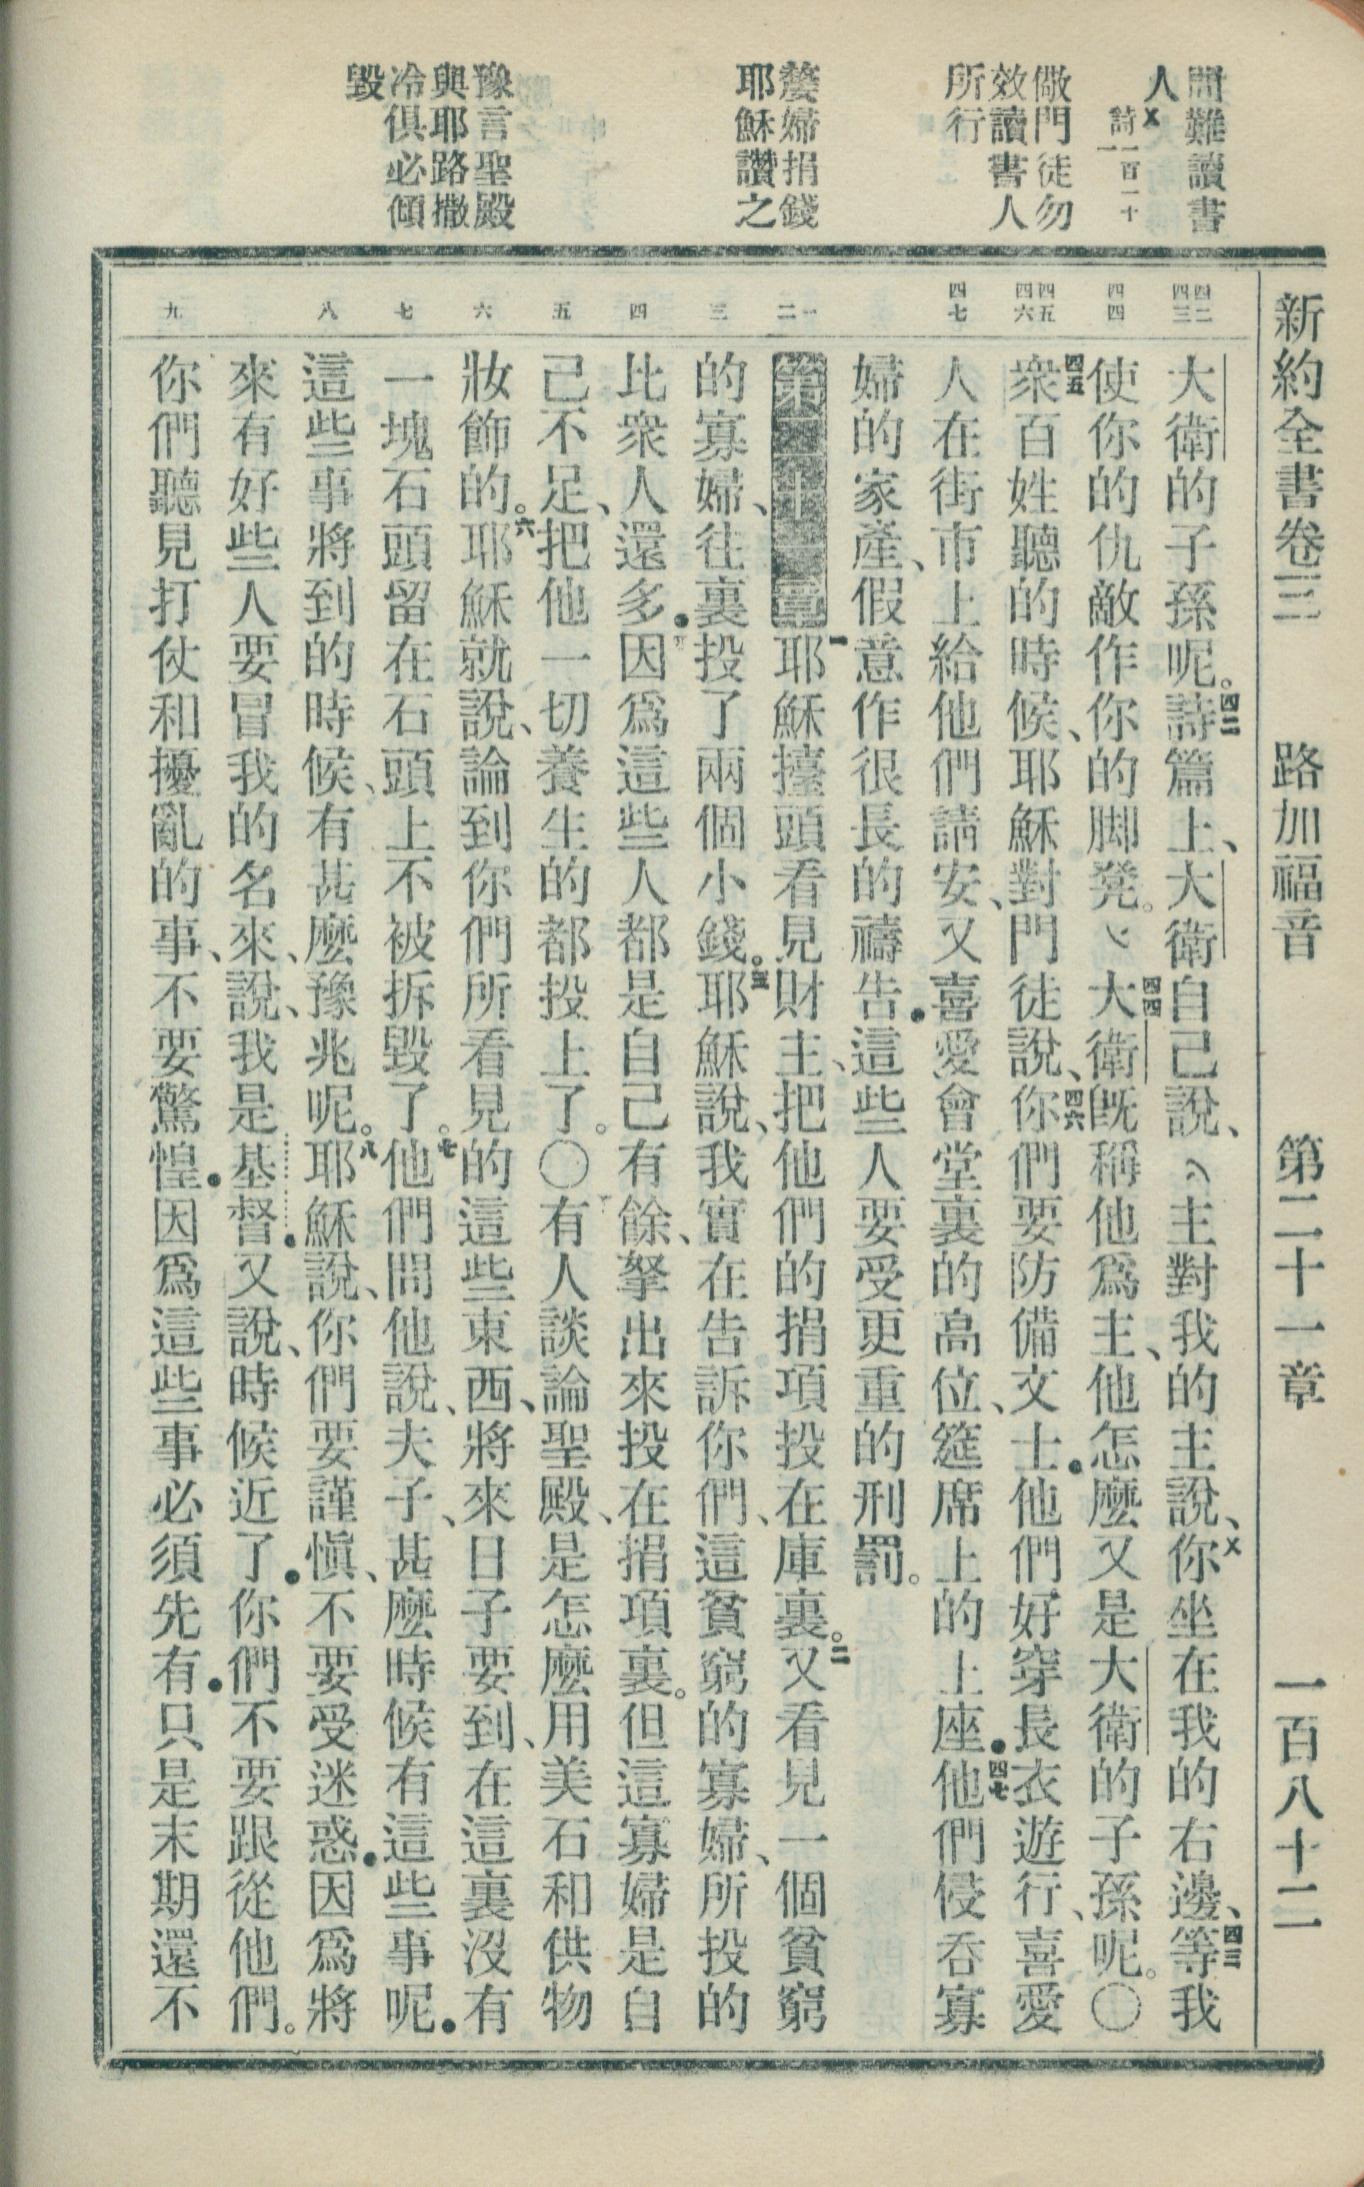 新約全書卷三　路加福音　第二十一章　一百八十二
問難讀書
人
詩一百一十
儆門徒勿
效讀書人
所行
嫠婦捐錢
耶穌讚之
豫言聖殿
與耶路撒
冷俱必傾
毀
四二
四三
四四
四五
四六
四七
一
二
三
四
五
六
七
八
九
大衛的子孫呢。四二詩篇上、大衛自己說、主對我的主說、你坐在我的右邊、四三等我
使你的仇敵作你的脚凳。四四大衛旣稱他爲主、他怎麼又是大衛的子孫呢。〇
四五衆百姓聽的時候、耶穌對門徒說、四六你們要防備文士．他們好穿長衣遊行、喜愛
人在街市上給他們請安、又喜愛會堂裏的高位、筵席上的上座．四七他們侵吞寡
婦的家產、假意作很長的禱告．這些人要受更重的刑罰。
第二十一章一耶穌擡頭看見財主、把他們的捐項投在庫裏。二又看見一個貧窮
的寡婦、往裏投了兩個小錢。三耶穌說、我實在告訴你們、這貧窮的寡婦、所投的
比衆人還多．因爲這些人都是自己有餘、拏出來投在捐項裏。但這寡婦是自
己不足、把他一切養生的都投上了。〇有人談論聖殿、是怎麼用美石和供物
妝飾的。六耶穌就說、論到你們所看見的這些東西、將來日子要到、在這裏沒有
一塊石頭留在石頭上不被拆毀了。七他們問他說、夫子、甚麼時候有這些事呢．
這些事將到的時候、有甚麼豫兆呢。八耶穌說、你們要謹愼、不要受迷惑．因爲將
來有好些人要冒我的名來、說、我是基督．又說、時候近了．你們不要跟從他們。
你們聽見打仗和擾亂的事、不要驚惶．因爲這些事必須先有．只是末期還不